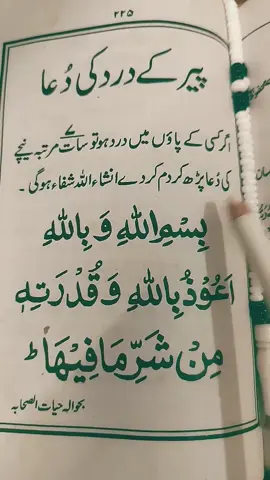 ۲۲۵
پیر کے درد کی دُعا
اگر کسی کے پاؤں میں درد ہو تو سات ۷ مرتبہ نیچے
کی دُعا پڑھ کر دم کر دے انشاء اللہ شفاء ہوگی ۔
بِسْمِ اللهِ وَ بِاللهِ
اَعُوْذُ بِاللهِ وَ قُدْرَتِهٖ
مِنْ شَرِّ مَا فِيْهَا ؕ
بحوالہ حیات الصحابہ